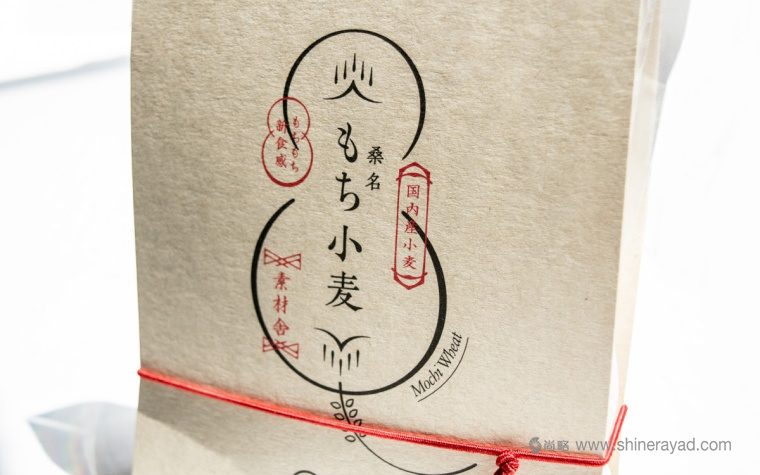 もちもち
新食感
桑名
もち小麦
国内産小麦
素材舎
Mochi Wheat
尚略 www.shinerayad.com